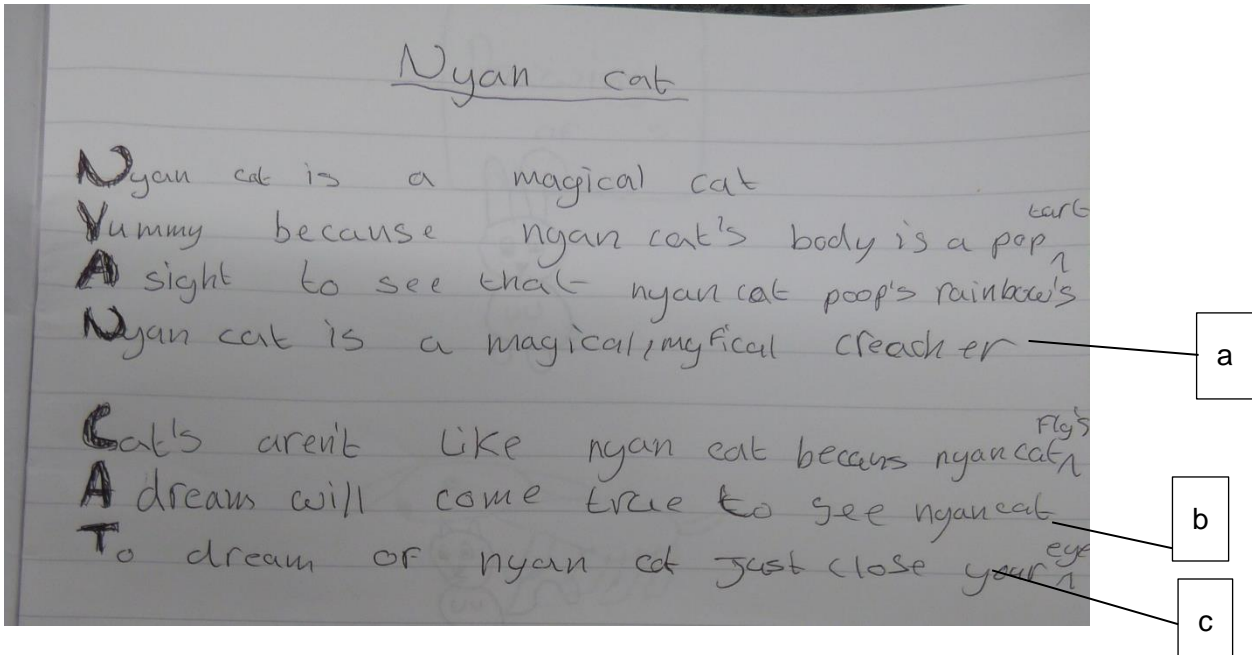 Nyan cat
Nyan cat is a magical cat
Yummy because nyan cat's body is a pop tart
A sight to see that nyan cat poop's rainbow's
Nyan cat is a magical, myfical creacher
a
Cat's aren't like nyan cat becaus nyan cat fly's
A dream will come true to see nyan cat
b
To dream of nyan cat just close your eye
c